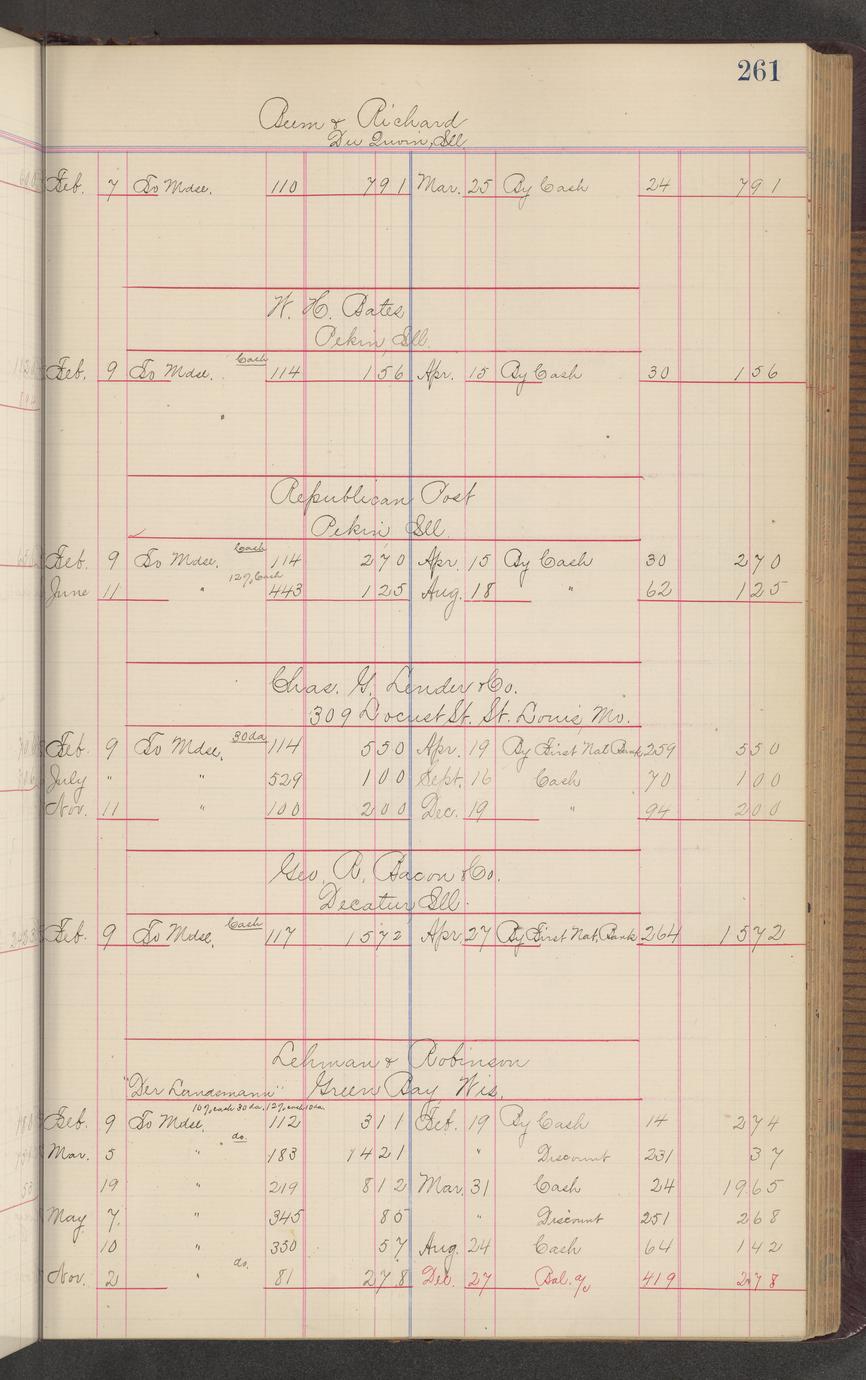 261
Beem & Richard
Du Quoin, Ill.
Feb. 7 To Mdse. 110 791 Mar. 25 By Cash 24 791
W. H. Bates
Pekin, Ill.
Cash
Feb. 9 To Mdse. 114 156 Apr. 15 By Cash 30 156
Republican Post
Pekin Ill.
Cash
Feb. 9 To Mdse. 114 270 Apr. 15 By Cash 30 270
12% Cash
June 11 " 443 125 Aug. 18 " 62 125
Chas. G. Lender & Co.
309 Locust St. St. Louis, Mo.
30 da
Feb. 9 To Mdse. 114 550 Apr. 19 By First Nat Bank 259 550
July " " 529 100 Sept. 16 Cash 70 100
Nov. 11 " 100 200 Dec. 19 " 94 200
Geo. R. Bacon & Co.
Decatur Ill.
Cash
Feb. 9 To Mdse. 117 1572 Apr. 27 By First Nat. Bank 264 1572
Lehman & Robinson
"Der Landsmann" Green Bay, Wis.
10% cash 30 da. 12% cash 10 da.
Feb. 9 To Mdse. 112 311 Feb. 19 By Cash 14 274
do.
Mar. 5 " 183 1421 " Discount 231 37
19 " 219 812 Mar. 31 Cash 24 1965
May 7. " 345 85 " Discount 251 268
10 " 350 57 Aug. 24 Cash 64 142
do.
Nov. 2 " 81 278 Dec. 27 Bal. a/c 419 278